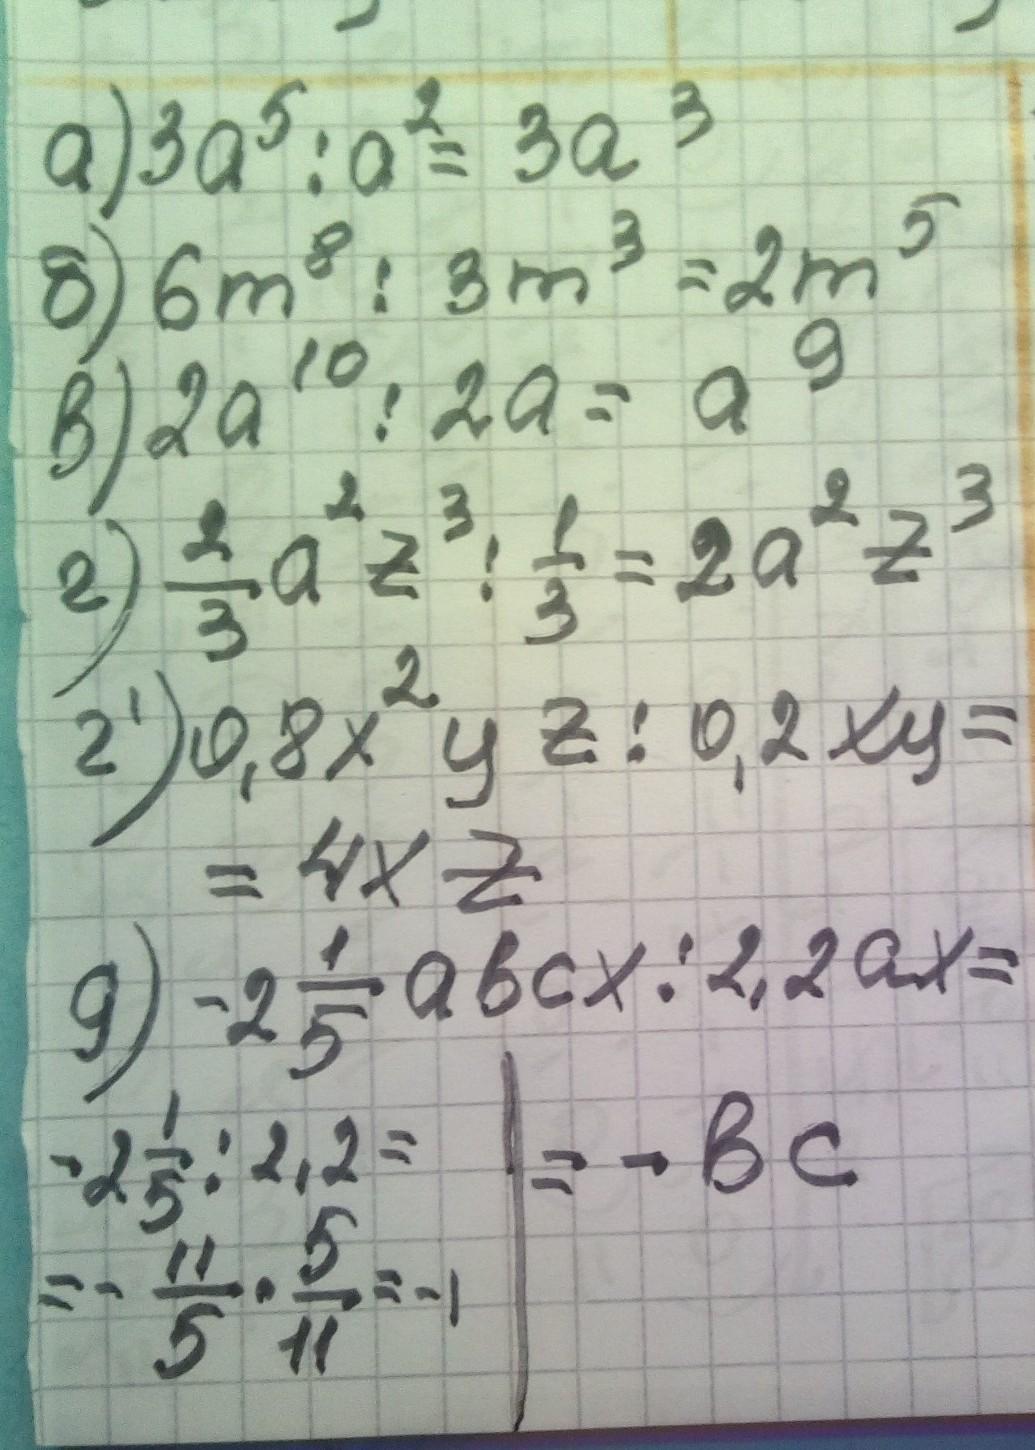 а) 3a⁵ : a² = 3a³
б) 6m⁸ : 3m³ = 2m⁵
в) 2a¹⁰ : 2a = a⁹
г) 2/3 a² z³ : 1/3 = 2a² z³
г') 0,8x² y z : 0,2 xy =
= 4x z
д) -2 1/5 abcx : 2,2ax =
-2 1/5 : 2,2 =
= - 11/5 · 5/11 = -1
= - bc